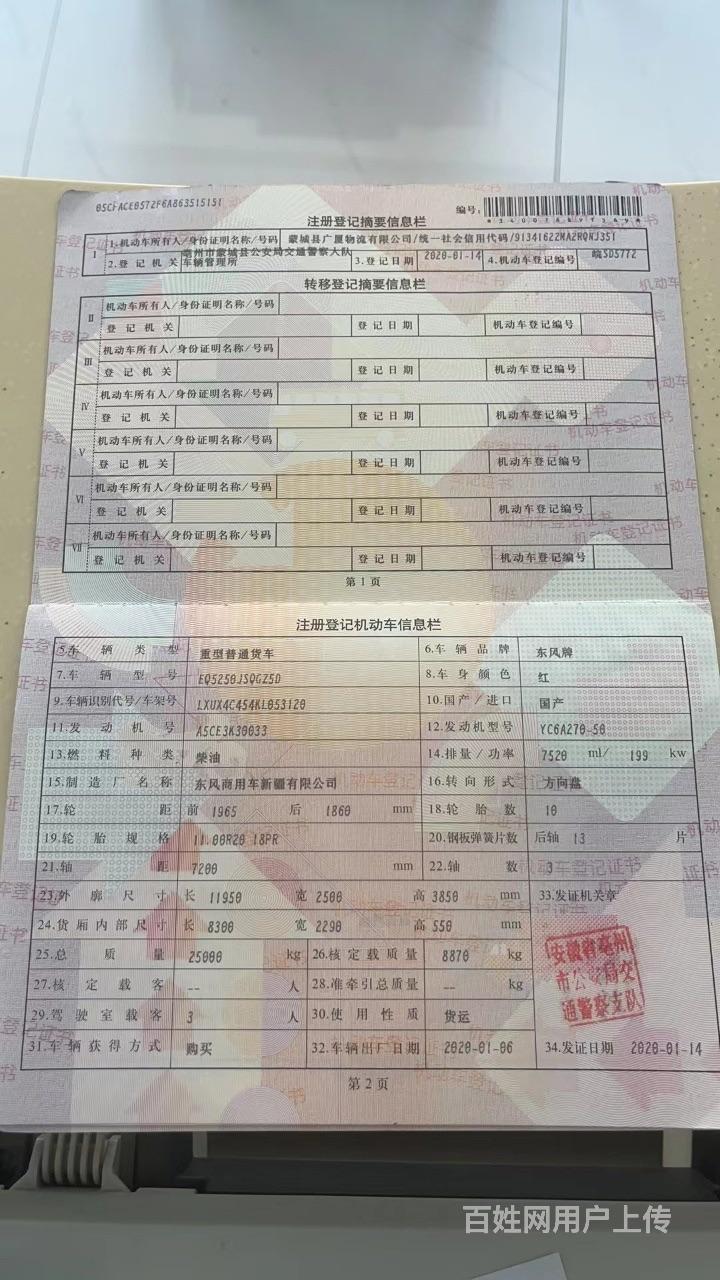 05CFACE0572F6A863515151
编号:
注册登记摘要信息栏
I 1.机动车所有人/身份证明名称/号码 蒙城县广厦物流有限公司/统一社会信用代码/91341622MA2RQNJ3S1
2.登记机关 亳州市蒙城县公安局交通警察大队车辆管理所 3.登记日期 2020-01-14 4.机动车登记编号 皖SD5772
转移登记摘要信息栏
II 机动车所有人/身份证明名称/号码
登记机关 登记日期 机动车登记编号
III 机动车所有人/身份证明名称/号码
登记机关 登记日期 机动车登记编号
IV 机动车所有人/身份证明名称/号码
登记机关 登记日期 机动车登记编号
V 机动车所有人/身份证明名称/号码
登记机关 登记日期 机动车登记编号
VI 机动车所有人/身份证明名称/号码
登记机关 登记日期 机动车登记编号
VII 机动车所有人/身份证明名称/号码
登记机关 登记日期 机动车登记编号
第1页
注册登记机动车信息栏
5.车辆类型 重型普通货车 6.车辆品牌 东风牌
7.车辆型号 EQ5250JSQGZ5D 8.车身颜色 红
9.车辆识别代号/车架号 LXUX4C454KL053120 10.国产/进口 国产
11.发动机号 A5CE3K30033 12.发动机型号 YC6A270-50
13.燃料种类 柴油 14.排量/功率 7520 ml/ 199 kw
15.制造厂名称 东风商用车新疆有限公司 16.转向形式 方向盘
17.轮距 前 1965 后 1860 mm 18.轮胎数 10
19.轮胎规格 11.00R20 18PR 20.钢板弹簧片数 后轴 13 片
21.轴距 7200 mm 22.轴数 3
23.外廓尺寸 长 11950 宽 2500 高 3850 mm 33.发证机关章
24.货厢内部尺寸 长 8300 宽 2290 高 550 mm
25.总质量 25000 kg 26.核定载质量 8870 kg
安徽省亳州
市公安局交
通警察支队
27.核定载客 -- 人 28.准牵引总质量 -- kg
29.驾驶室载客 3 人 30.使用性质 货运
31.车辆获得方式 购买 32.车辆出厂日期 2020-01-06 34.发证日期 2020-01-14
第2页
百姓网用户上传